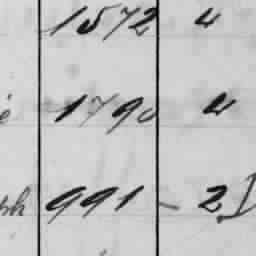 1572 4
e 1790 4
ph 991 – 2